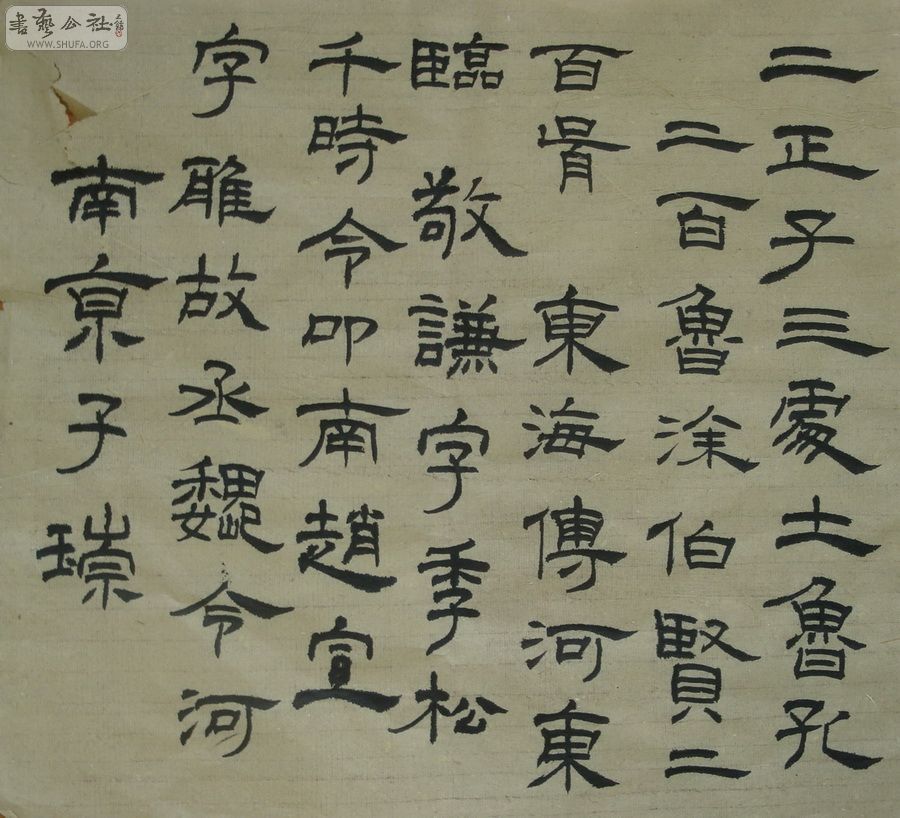 二正子三處士魯孔
二百魯涂伯賢二
百骨 東海傅河東
臨 敬謙字季松
千時令印南趙宣
字雎故丞魏令河
南京子琮
書藝公社
WWW.SHUFA.ORG